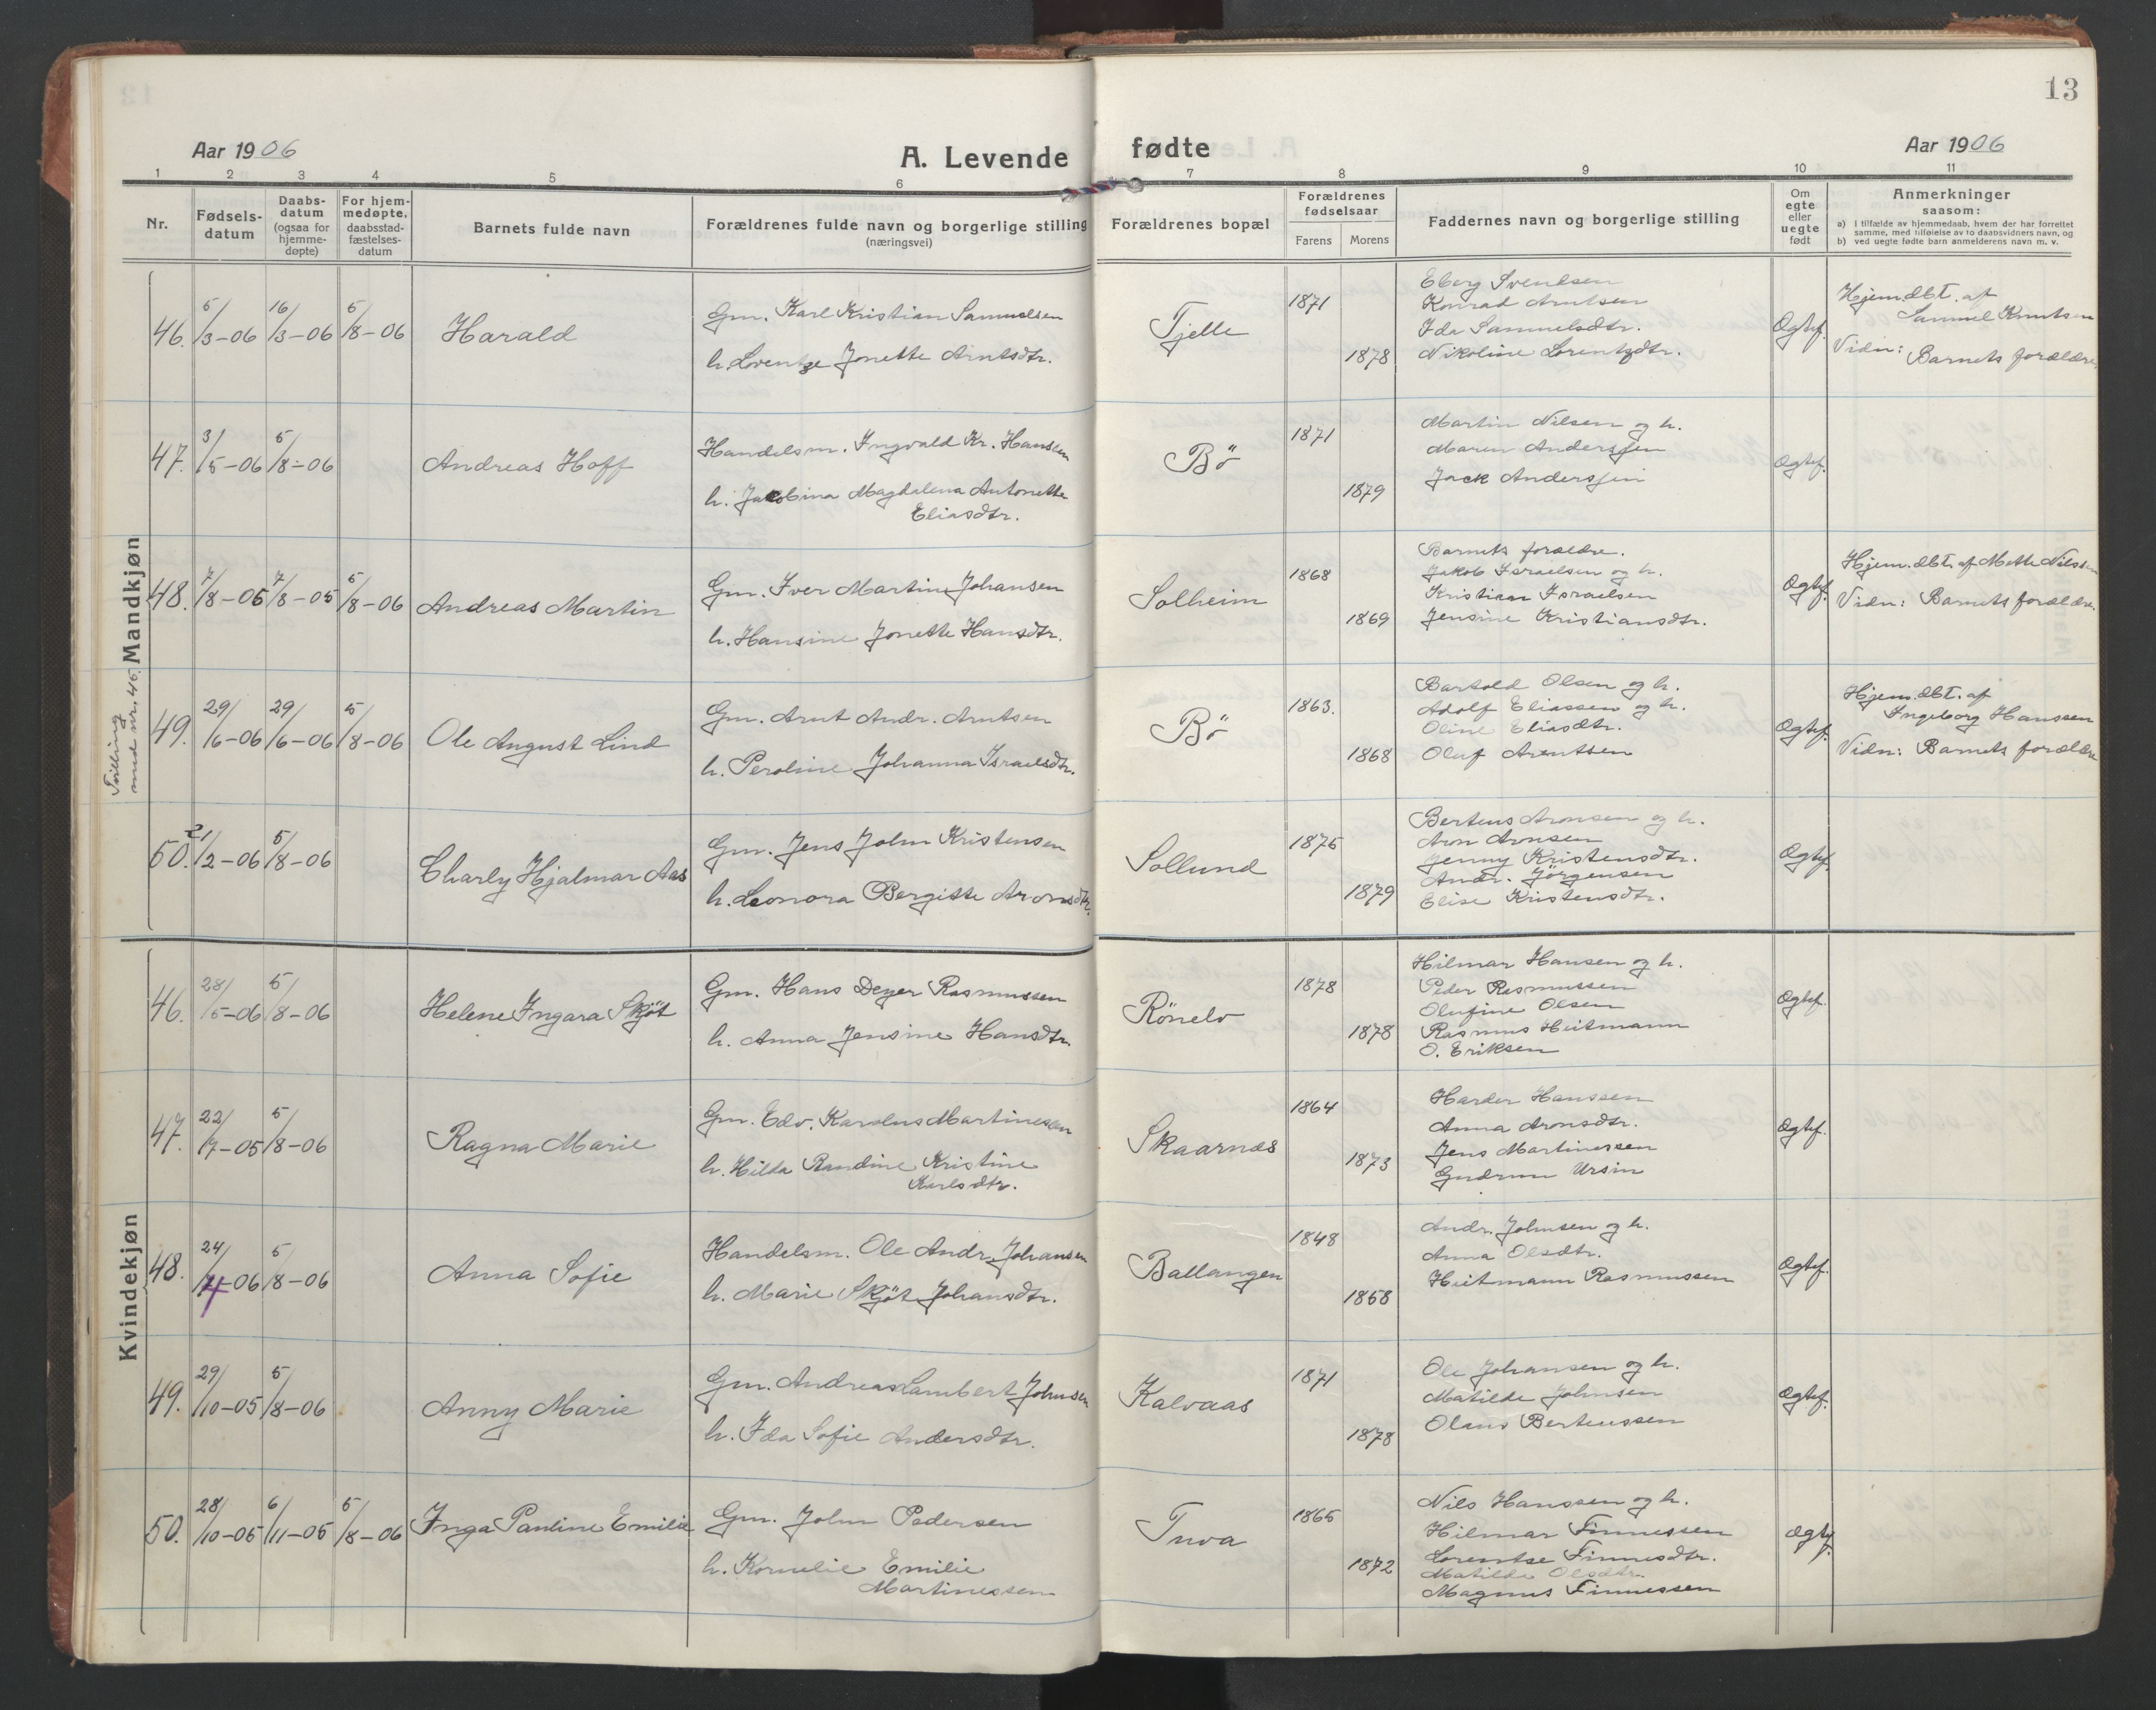 13
Aar 1906
A. Levende fødte
Aar 1906
1 2 3 4 5 6 7 8 9 10 11
Nr.
Fødsels-
datum
Daabs-
datum
(ogsaa for
hjemme-
døpte)
For hjem-
medøpte,
daabsstad-
fæstelses-
datum
Barnets fulde navn
Forældrenes fulde navn og borgerlige stilling
(næringsvei)
Forældrenes bopæl
Forældrenes
fødselsaar
Farens Morens
Faddernes navn og borgerlige stilling
Om
egte
eller
uegte
født
Anmerkninger
saasom:
a) i tilfælde av hjemmedaab, hvem der har forrettet
samme, med tilføielse av to daabsvidners navn, og
b) ved uegte fødte barn anmelderens navn m. v.
Mandkjøn
46. 5/3-06 16/3-06 5/8-06
Harald
Gm. Karl Kristian Samuelsen
h. Lorentze Jonette Arntsdtr.
Tjelle
1871
1878
Eberg Svendsen
Konrad Arntsen
Ida Samuelsdtr.
Nikoline Lorentzdtr.
Ögtef.
Hjem.dbt. af
Samuel Knutsen
Vidn: Barnets forældre
47. 3/5-06 5/8-06
Andreas Hoff
Handelsm. Ingvald Kr. Hansen
h. Jacobina Magdalena Antonette
Eliasdtr.
Bö
1871
1879
Martin Nilsen og h.
Maren Anderssen
Jack Anderssen
Ögtef.
48. 7/8-05 7/8-05 5/8-06
Andreas Martin
Gm. Iver Martin Johansen
h. Hansine Jonette Hansdtr.
Solheim
1868
1869
Barnets forældre.
Jakob Israelsen og h.
Kristian Israelsen
Jensine Kristiansdtr.
Ögtef.
Hjem.dbt. af Mette Nilssen
Vidn: Barnets forældre.
Tvilling
med nr. 45.
49. 29/6-06 29/6-06 5/8-06
Ole August Lind
Gm. Arnt Andr. Arntsen
h. Peroline Johanna Israelsdtr.
Bö
1863.
1868
Bartold Olsen og h.
Adolf Eliassen og h.
Oline Eliasdtr.
Oluf Arentsen
Ögtef.
Hjem.dbt. af
Ingeborg Hanssen
Vidn: Barnets forældre
50. 21/2-06 5/8-06
Charly Hjalmar Aas
Gm. Jens John Kristensen
h. Leonora Bergitte Aronsdtr.
Sollund
1875
1879
Berteus Aronsen og h.
Aron Aronsen
Jenny Kristensdtr.
Andr. Jörgensen
Elise Kristensdtr.
Ögtef.
Kvindekjøn
46. 28/5-06 5/8-06
Helene Ingara Skjöt
Gm. Hans Deyer Rasmussen
h. Anna Jensine Hansdtr.
Rönelv
1878
1878
Hilmar Hansen og h.
Peder Rasmussen
Olufine Olsen
Rasmus Heitmann
O. Eriksen
Ögtef.
47. 22/7-05 5/8-06
Ragna Marie
Gm. Edv. Karolus Martinessen
h. Hilda Randine Kristine
Karlsdtr.
Skaarnæs
1864
1873
Harder Hanssen
Anna Aronsdtr.
Jens Martinessen
Gudrun Ursin
Ögtef.
48. 24/4-06 5/8-06
Anna Sofie
Handelsm. Ole Andr. Johansen
h. Marie Skjöt Johansdtr.
Ballangen
1848
1858
Andr. Johnsen og h.
Anna Olsdtr.
Heitmann Rasmussen
Ögtef.
49. 29/10-05 5/8-06
Anny Marie
Gm. Andreas Lambert Johnsen
h. Ida Sofie Andersdtr.
Kalvaas
1871
1878
Ole Johansen og h.
Matilde Johnsen
Olaus Berteussen
Ögtef.
50. 28/10-05 6/11-05 5/8-06
Inga Pauline Emilie
Gm. John Pedersen
h. Kornelie Emilie
Martinessen
Tuva
1865
1872
Nils Hanssen og h.
Hilmar Finnessen
Lorentse Finnesdtr.
Matilde Olsdtr.
Magnus Finnessen
Ögtef.